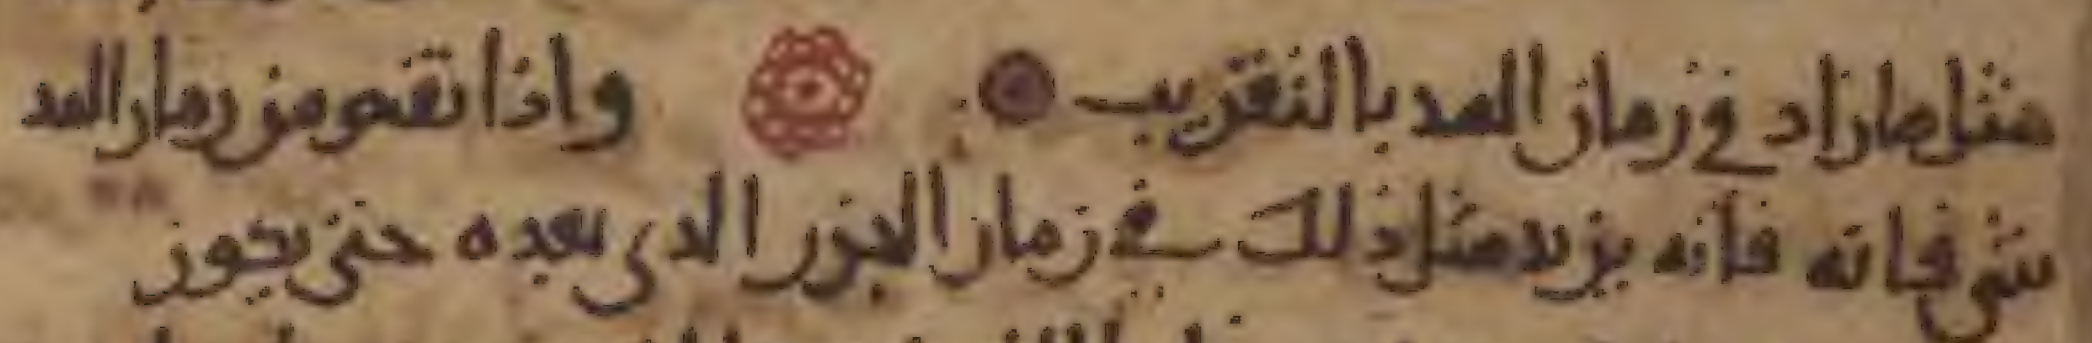 مثل ما زاد في زمان المد بالتقريب واذا نقص من زمان المد
شي فاته فانه يزيد مثل ذلك في زمان الجزر الذي بعده حتى يكون